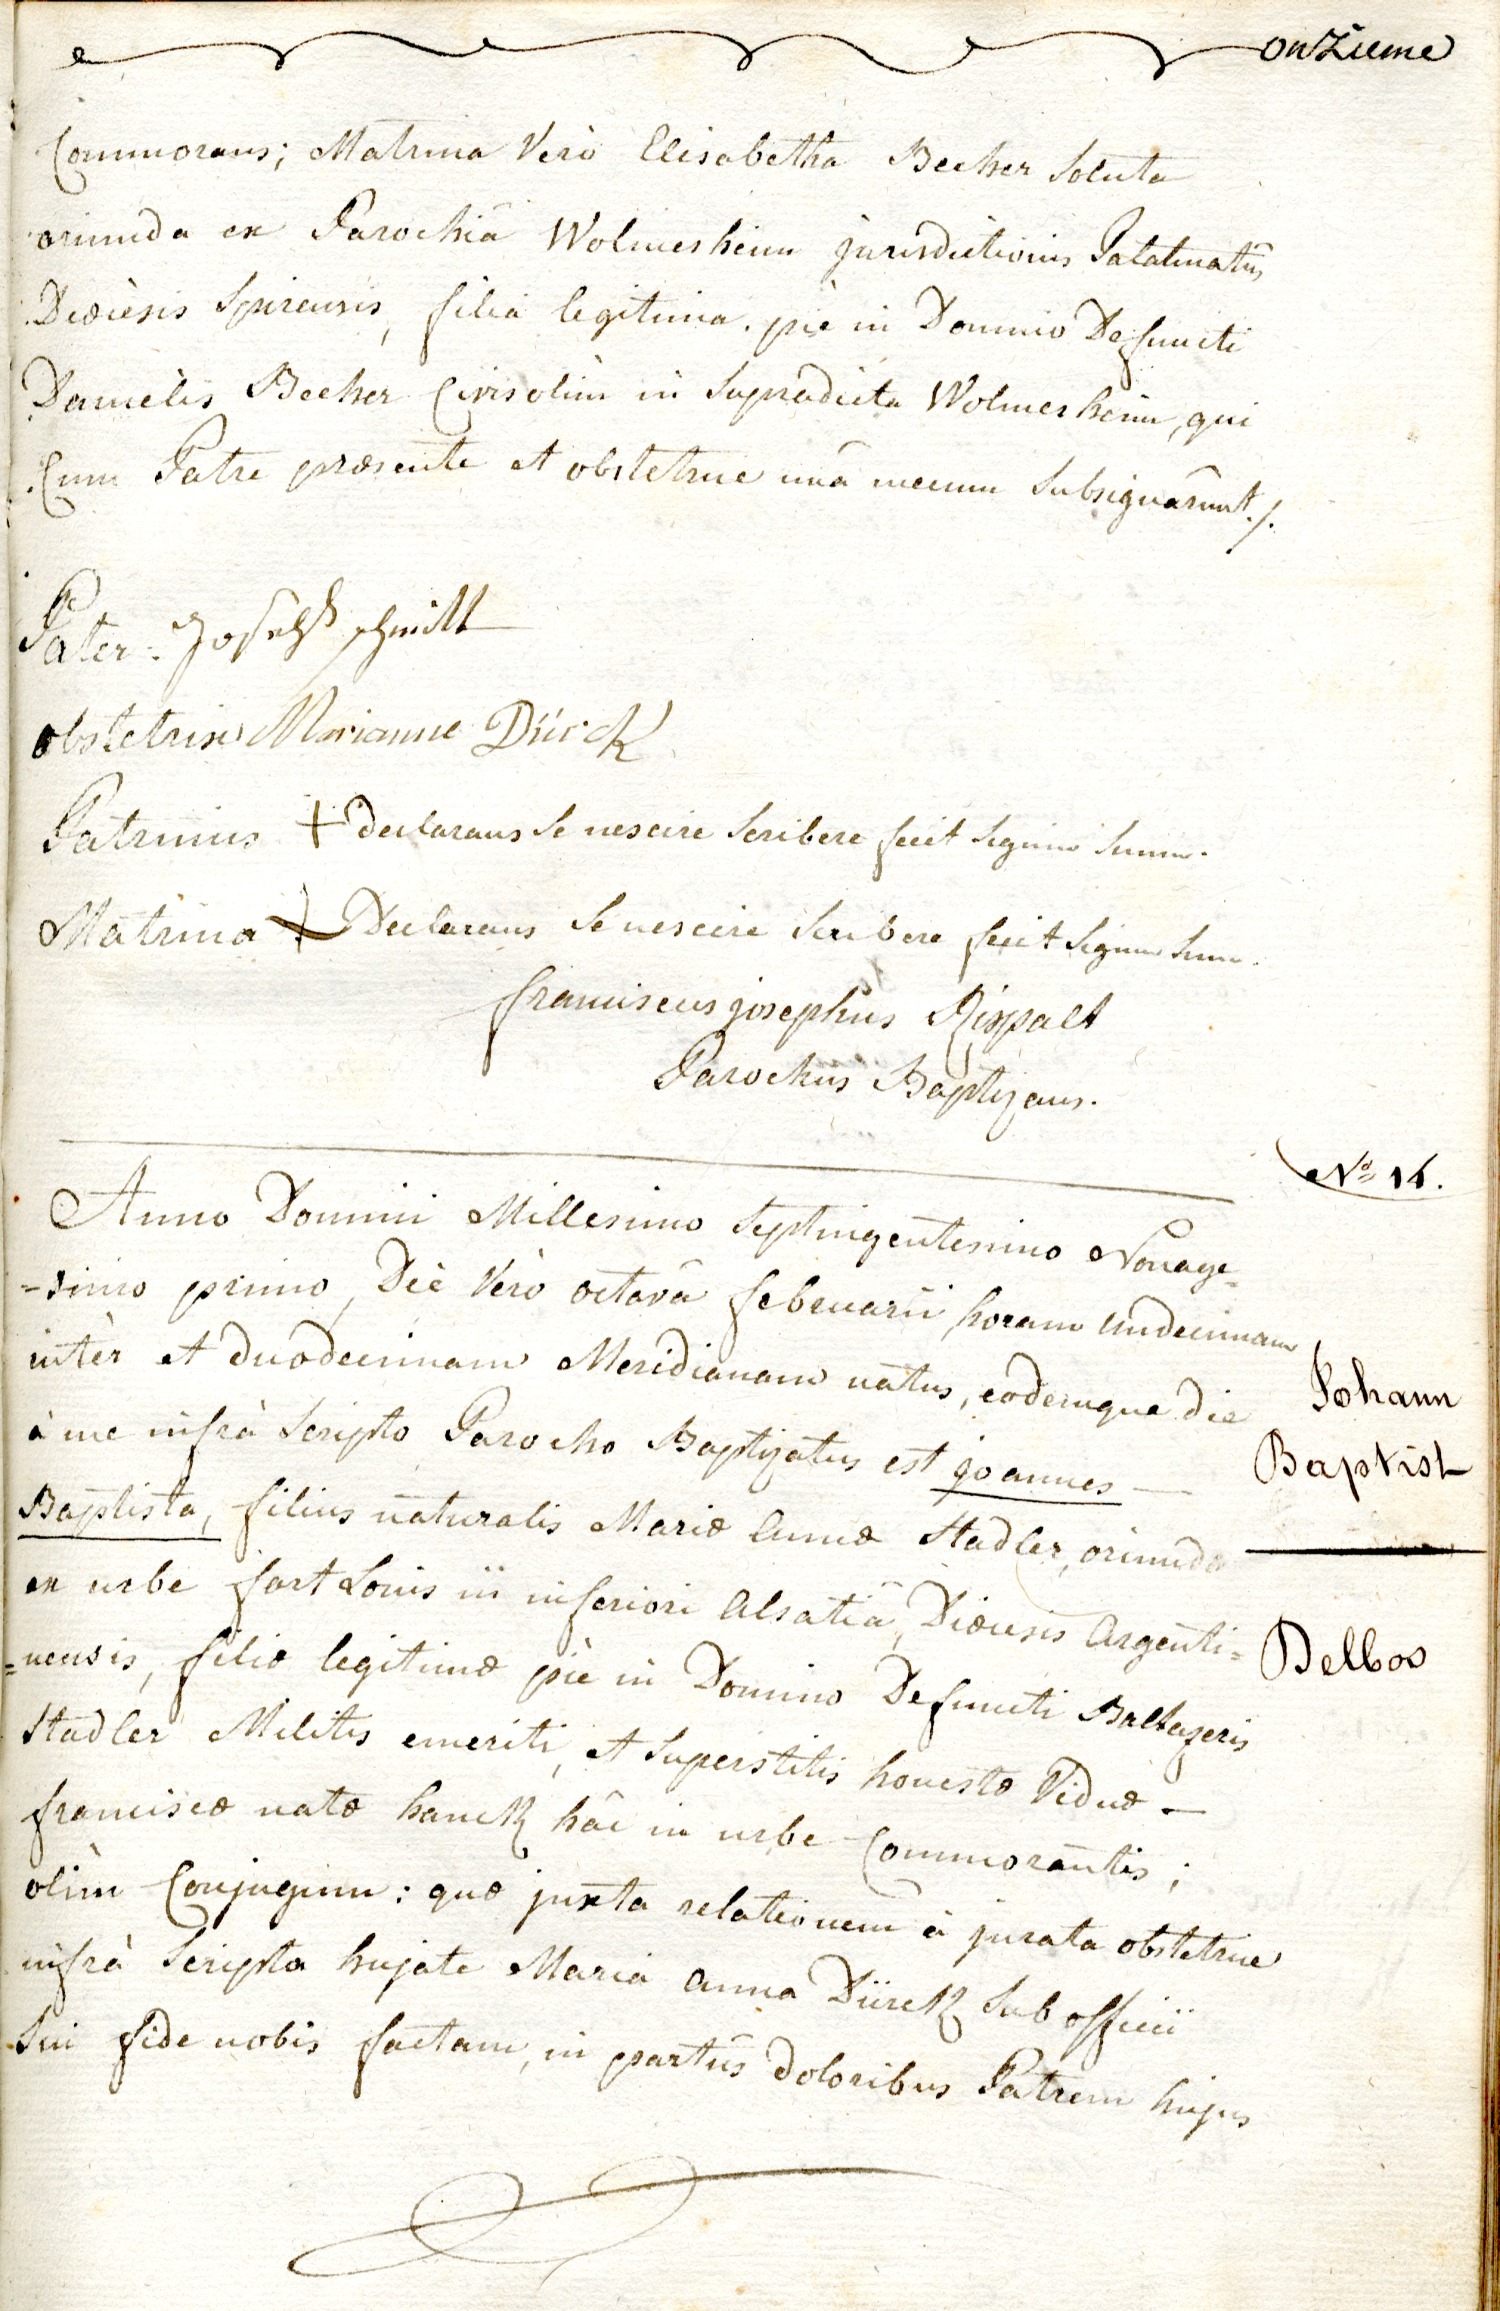 onzieme
Commorans; Matrina Verò Elisabetha Becker Soluta
oriunda ex Parochiâ Wolmesheim jurisdictionis Palatinatûs
Dioecèsis Spirensis, filia legitima piè in Domino Defuncti
Danièlis Becker Civis olìm in Supradicta Wolmesheim, qui
Cum Patre præsente et obstetrice unâ mecum Subsignârunt./.
Pater: Joseph schmitt
obstetrix Marianne Dürck
Patrinus + declarans Se nescire Scribere fecit Signum Suum.
Matrina + Declarans Se nescire Scribere fecit Signum Suum.
franciscus josephus Rispalt
Parochus Baptizans.
N.º 14.
Anno Domini Millesimo Septingentesimo Nonage=
=simo primo, Diè Verò octavâ februarii, horam undecimam
intèr et duodecimam Meridianam natus, eodemque die
à me infrà Scripto Parocho Baptizatus est joannes —
Baptista, filius naturalis Mariæ Annæ Stadler, oriundæ
ex urbe fort Louis in inferiori Alsatiâ, Dioecesis Argenti=
=nensis, filiæ legitimæ piè in Domino Defuncti Baltazeris
Stadler Militis emeriti, et Superstitis honestæ Viduæ —
franciscæ natæ hanck hâc in urbe Commorantis;
olìm Conjugum: quæ juxta relationem à jurata obstetrice
infrà Scripta hujate Maria Anna Dürck Sub officii
Sui fide nobis factam, in partûs doloribus Patrem hujus
Johann
Baptist
Delbos